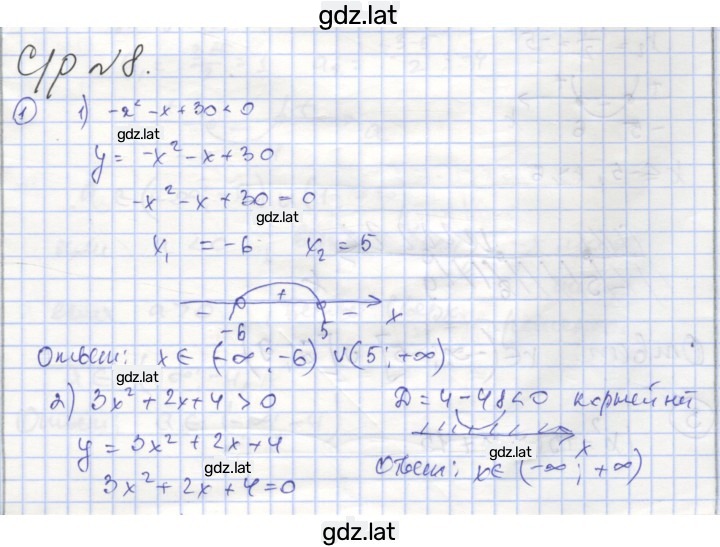 gdz.lat
С/р №8.
① 1) -x² - x + 30 < 0
gdz.lat
y = -x² - x + 30
-x² - x + 30 = 0
gdz.lat
x₁ = -6 x₂ = 5
- + - x
-6 5
Ответ: x ∈ (-∞; -6) ∪ (5; +∞)
gdz.lat
2) 3x² + 2x + 4 > 0 D = 4 - 48 < 0 корней нет
y = 3x² + 2x + 4 x
gdz.lat
3x² + 2x + 4 = 0 Ответ: x ∈ (-∞; +∞)
gdz.lat